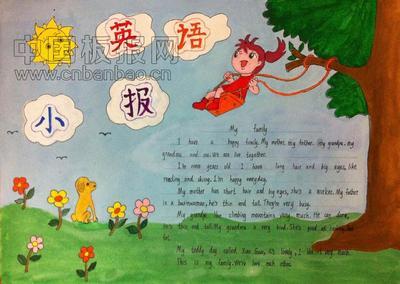 中国板报网
www.cnbanbao.cn
英语
小报
My family
I have a happy family. My mother, my father. My grandpa, my
grandma and me. We are live together.
I'm nine years old. I have long hair and big eyes, like
reading and skiing. I'm happy everyday.
My mother has short hair and big eyes, she's a worker. My father
is a businessman, he's thin and tall. They're very busy.
My grandpa like climbing mountains very much. He can
he's thin and tall. My grandma is very kind. She's good at
My teddy dog called Xiao Guai, it's lovely, I like it very much.
This is my family. We're love each other.